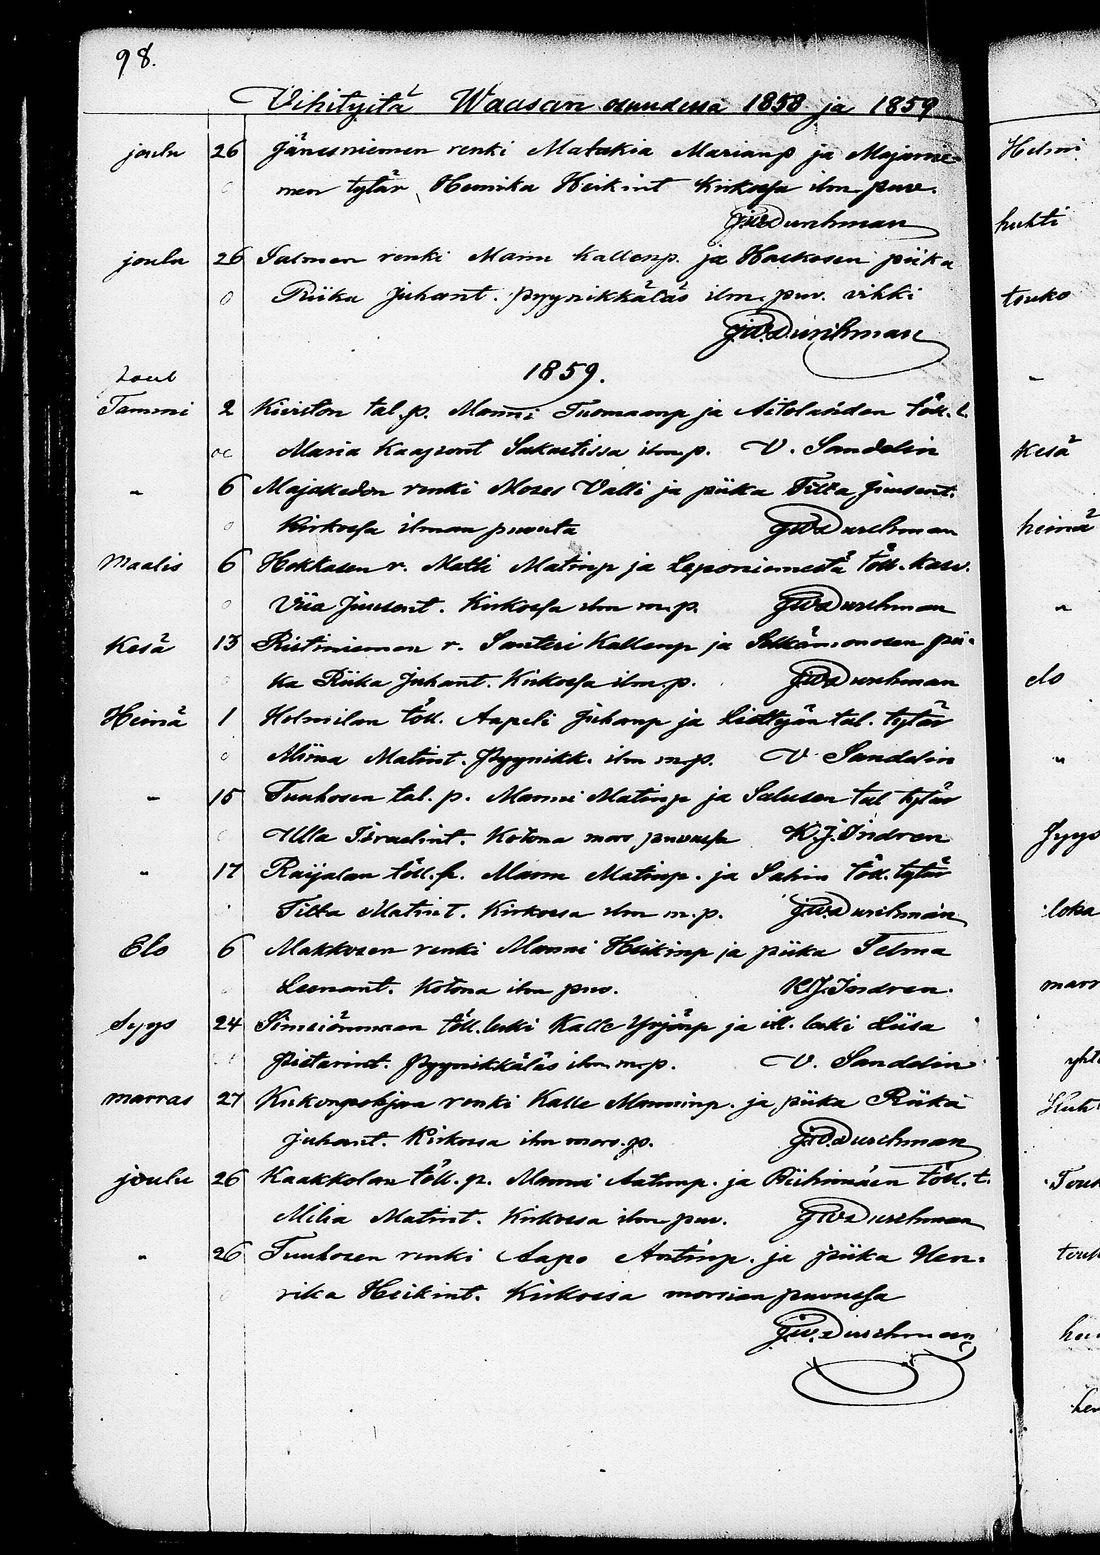 98.
Vihityitä Waasan osuudessa 1858 ja 1859
joulu 26 Jänesniemen renki Matakia Marianp ja Majanie-
men tytär Hemika Heikint Kirkossa ilm puv.
J.W. Durchman
joulu 26 Salmen renki Mannu Kallenp. ja Haukosen piika
Riika Juhant. Pyynikkäläs ilm. puv. vihki
J.W. Durchman
1859.
Tammi 2 tal. p. Manni Tuomaanp ja töll. t.
Maria Kaapront ilm p. V. Sandelin
" 6 Majakedon renki Moses Valli ja piika Tilta Juusent.
Kirkossa ilman puvuta J.W. Durchman
Maalis 6 Hokkasen r. Matti Matinp ja Leponiemestä töll. kasv.
Viia Juusent. Kirkossa ilm m.p. J.W. Durchman
Kesä 13 Ristiniemen r. Santeri Kallenp ja pii-
ka Riika Juhant. Kirkossa ilm p. J.W. Durchman
Heinä 1 Holmilan töll. Aapeli Juhanp ja tal. tytär
Miina Matint. Pyynikk. ilm m.p. V Sandelin
" 15 Tuuhosen tal. p. Manni Matinp ja Salusen tal tytär
Ulla Israelint. Kotona mors puvussa K.J. Indren
" 17 Raijalan töll. p. Mannu Matinp. ja Sahin töll. tytär
Tilta Matint. Kirkossa ilm m.p. J.W. Durchman
Elo 6 Makkosen renki Manni Heikinp ja piika Selma
Leenant. Kotona ilm puv. K.J. Indren.
Syys 24 Simeiönmaan töll. leski Kalle Yrjönp ja it. leski Liisa
Pietarint. Pyynikkäläs ilm m.p. V. Sandelin
marras 27 Kirkonpohjan renki Kalle Manninp. ja piika Riika
Juhant. Kirkossa ilm mors. p. J.W. Durchman
joulu 26 Kaakkolan töll. p. Manni Antinp. ja Riihimäen töll. t.
Milia Matint. Kirkossa ilm puv. J.W. Durchman
" 26 Tuuhosen renki Aapo Antinp. ja piika Hen-
rika Heikint. Kirkossa morsian puvussa
J.W. Durchman
Helmi
huhti
touko
"
Kesä
heinä
"
elo
"
Syys
loka
marr
Huh
Touk
touk